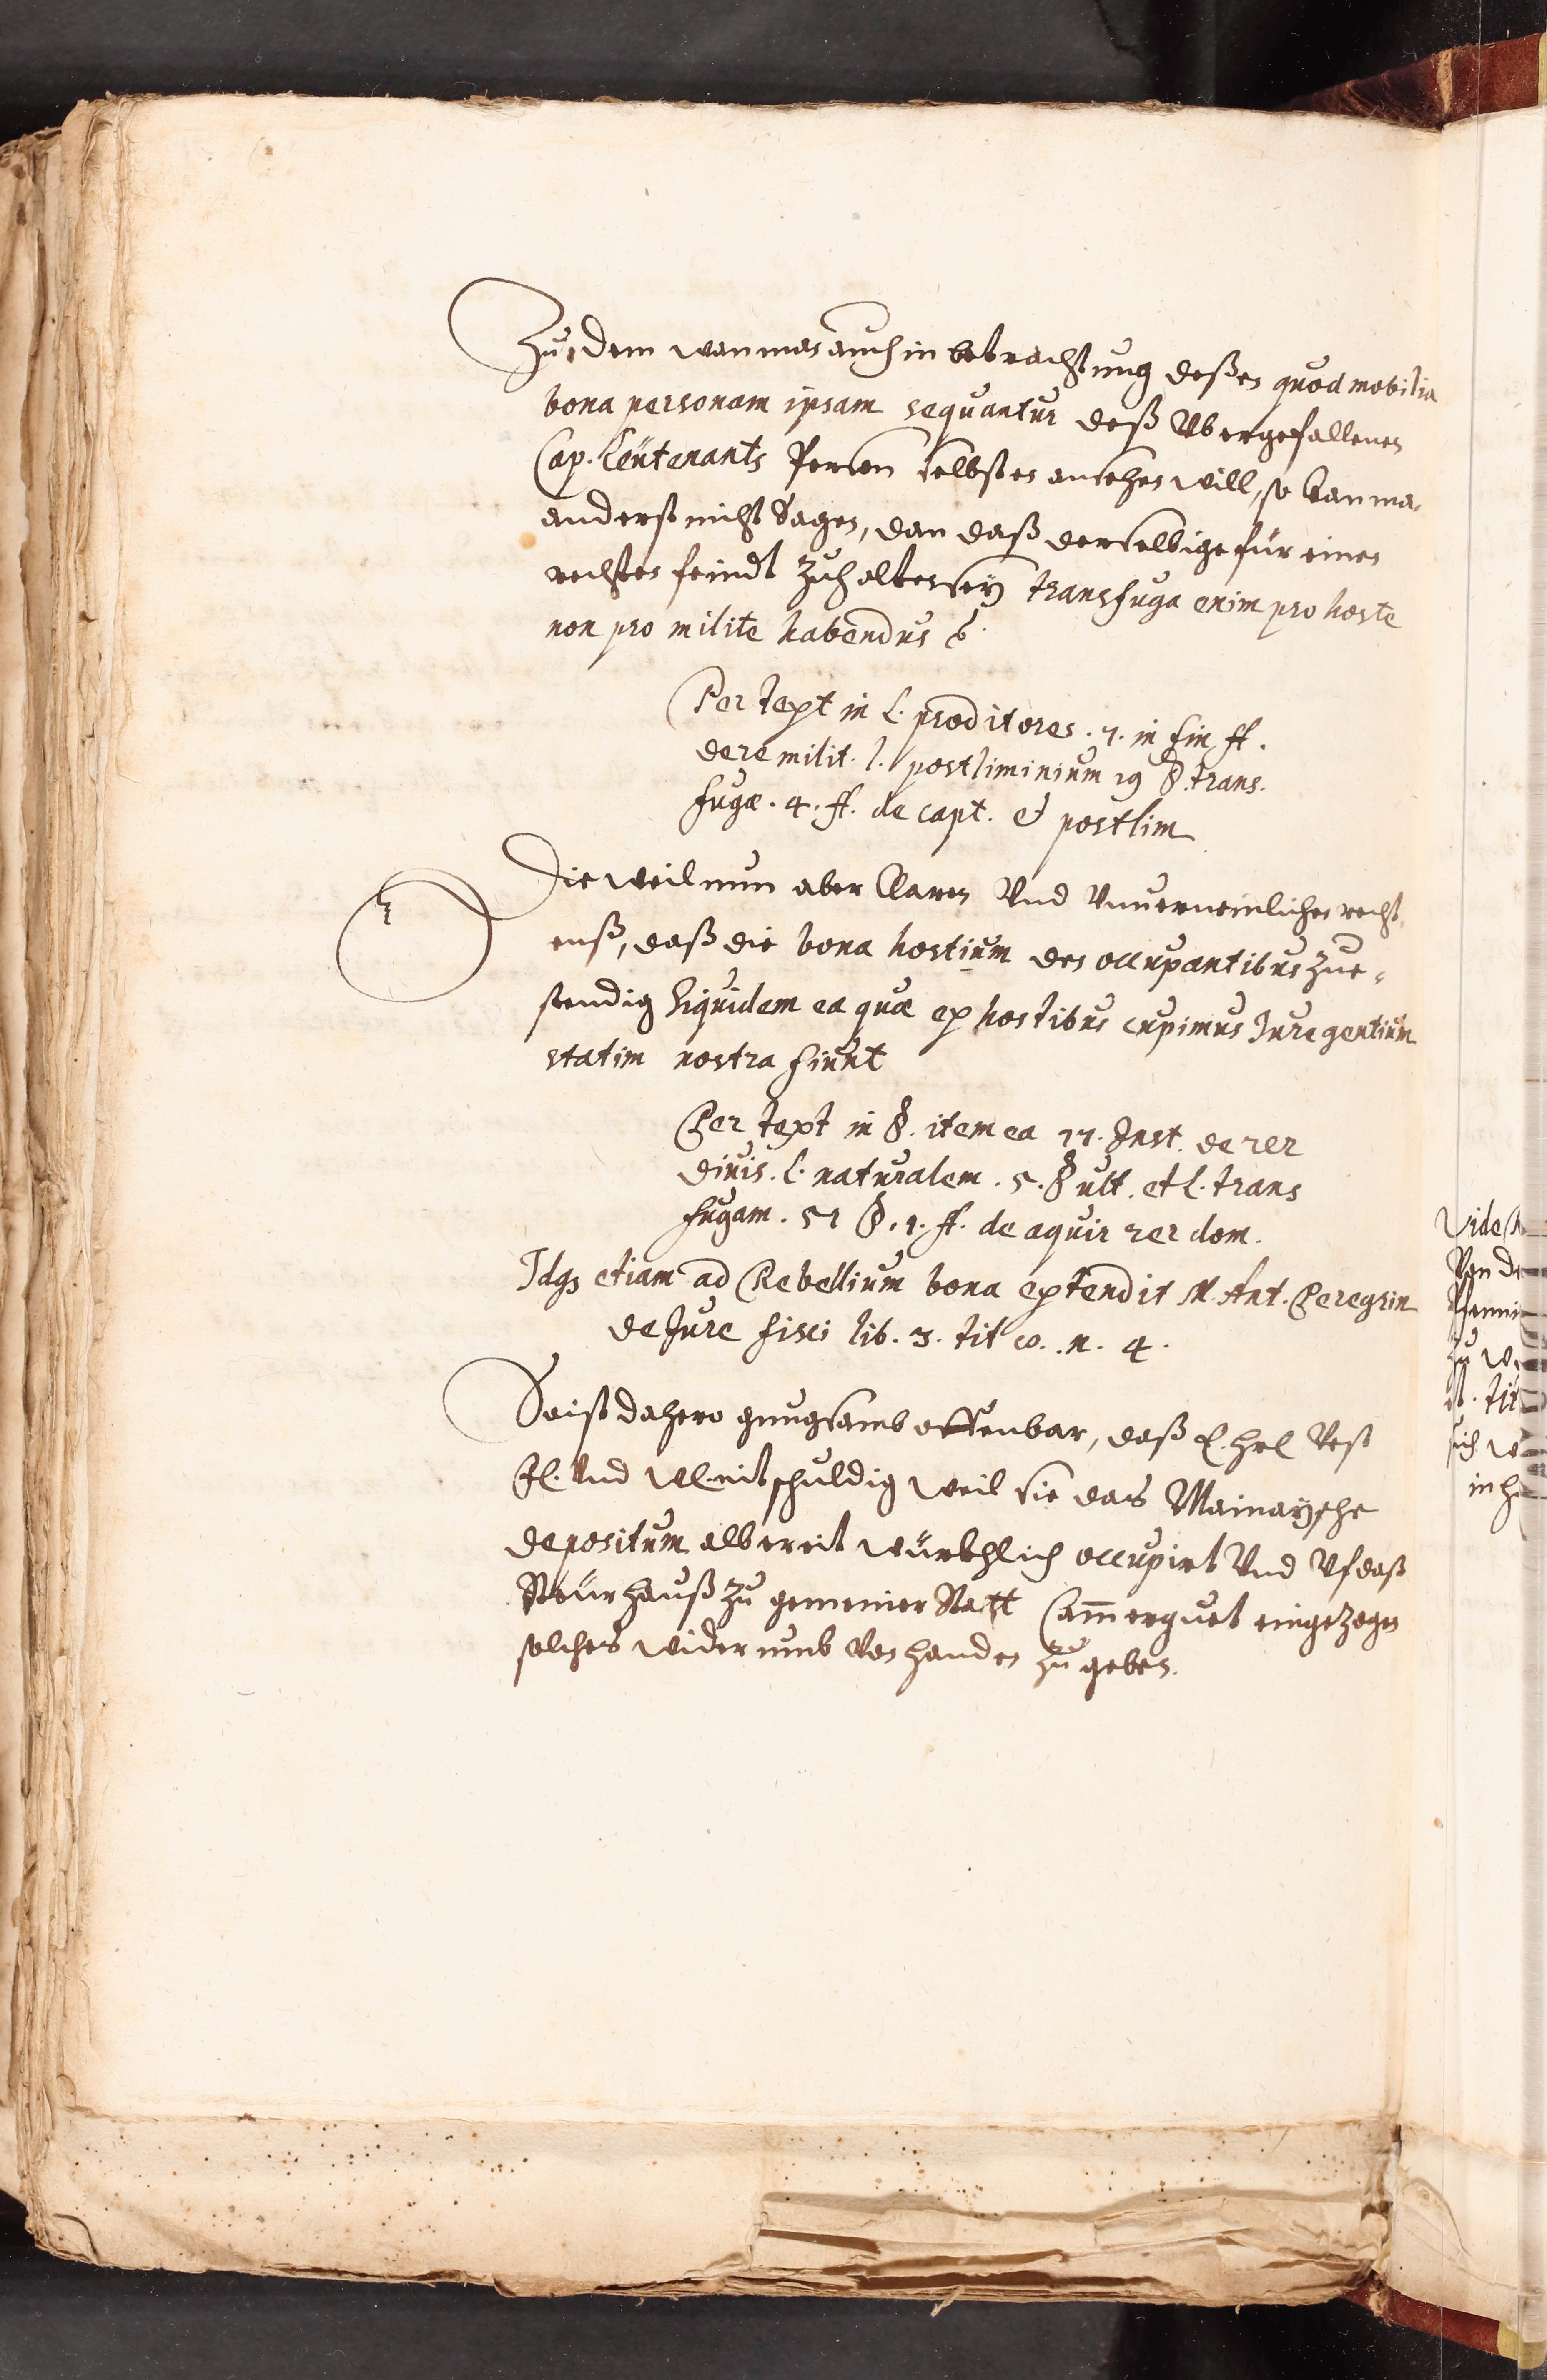 Zu dem wan man auch in betrachtung deßen quod mobilia
bona personam ipsam sequantur deß Vbergefallenen
Cap. Leütenants Person selbsten ansehen will, so kan man
anderst nicht Sagen, dan daß derselbige für einen
rechten feindt zuhalten sey transfuga enim pro hoste
non pro milite habendus
Per text in l. proditores . 7. in fin ff.
de re milit. l. postliminium 19 §. trans.
fugæ . 4. ff. de capt. & postlim
Die weil nun aber Claren Vnd Vnuerneinlichen recht
enß, daß die bona hostium den occupantibus zue-
stendig siquidem ea quæ ex hostibus cupimus Jure gentium
statim nostra fiunt
Per text in §. item ea 17. Inst. de rer
diuis. l. naturalem . 5. § ult. et l. trans
fugam . 51 §. 1. ff. de aquir rer dom.
Idqȝ etiam ad Rebellium bona extendit M. Ant. Peregrin
de Jure fisci lib. 3. tit 10. n. 4.
So ist dahero gnugsamb offenbar, daß E. Hrl Vest
Fl. Vnd Wl. nit schuldig weil sie das Mainaysche
depositum albereit würkhlich occupirt Vnd Vf daß
Steürhauß zu gemeiner Statt Cam̄erguet eingezogen
solches widerumb Von handen zu geben.
Vide
Von
zu
tit
sich
in